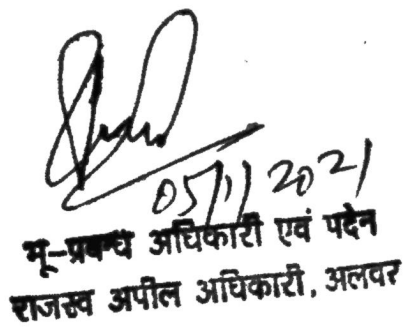 05/11/2021
भू-प्रबन्ध अधिकारी एवं पदेन
राजस्व अपील अधिकारी, अलवर